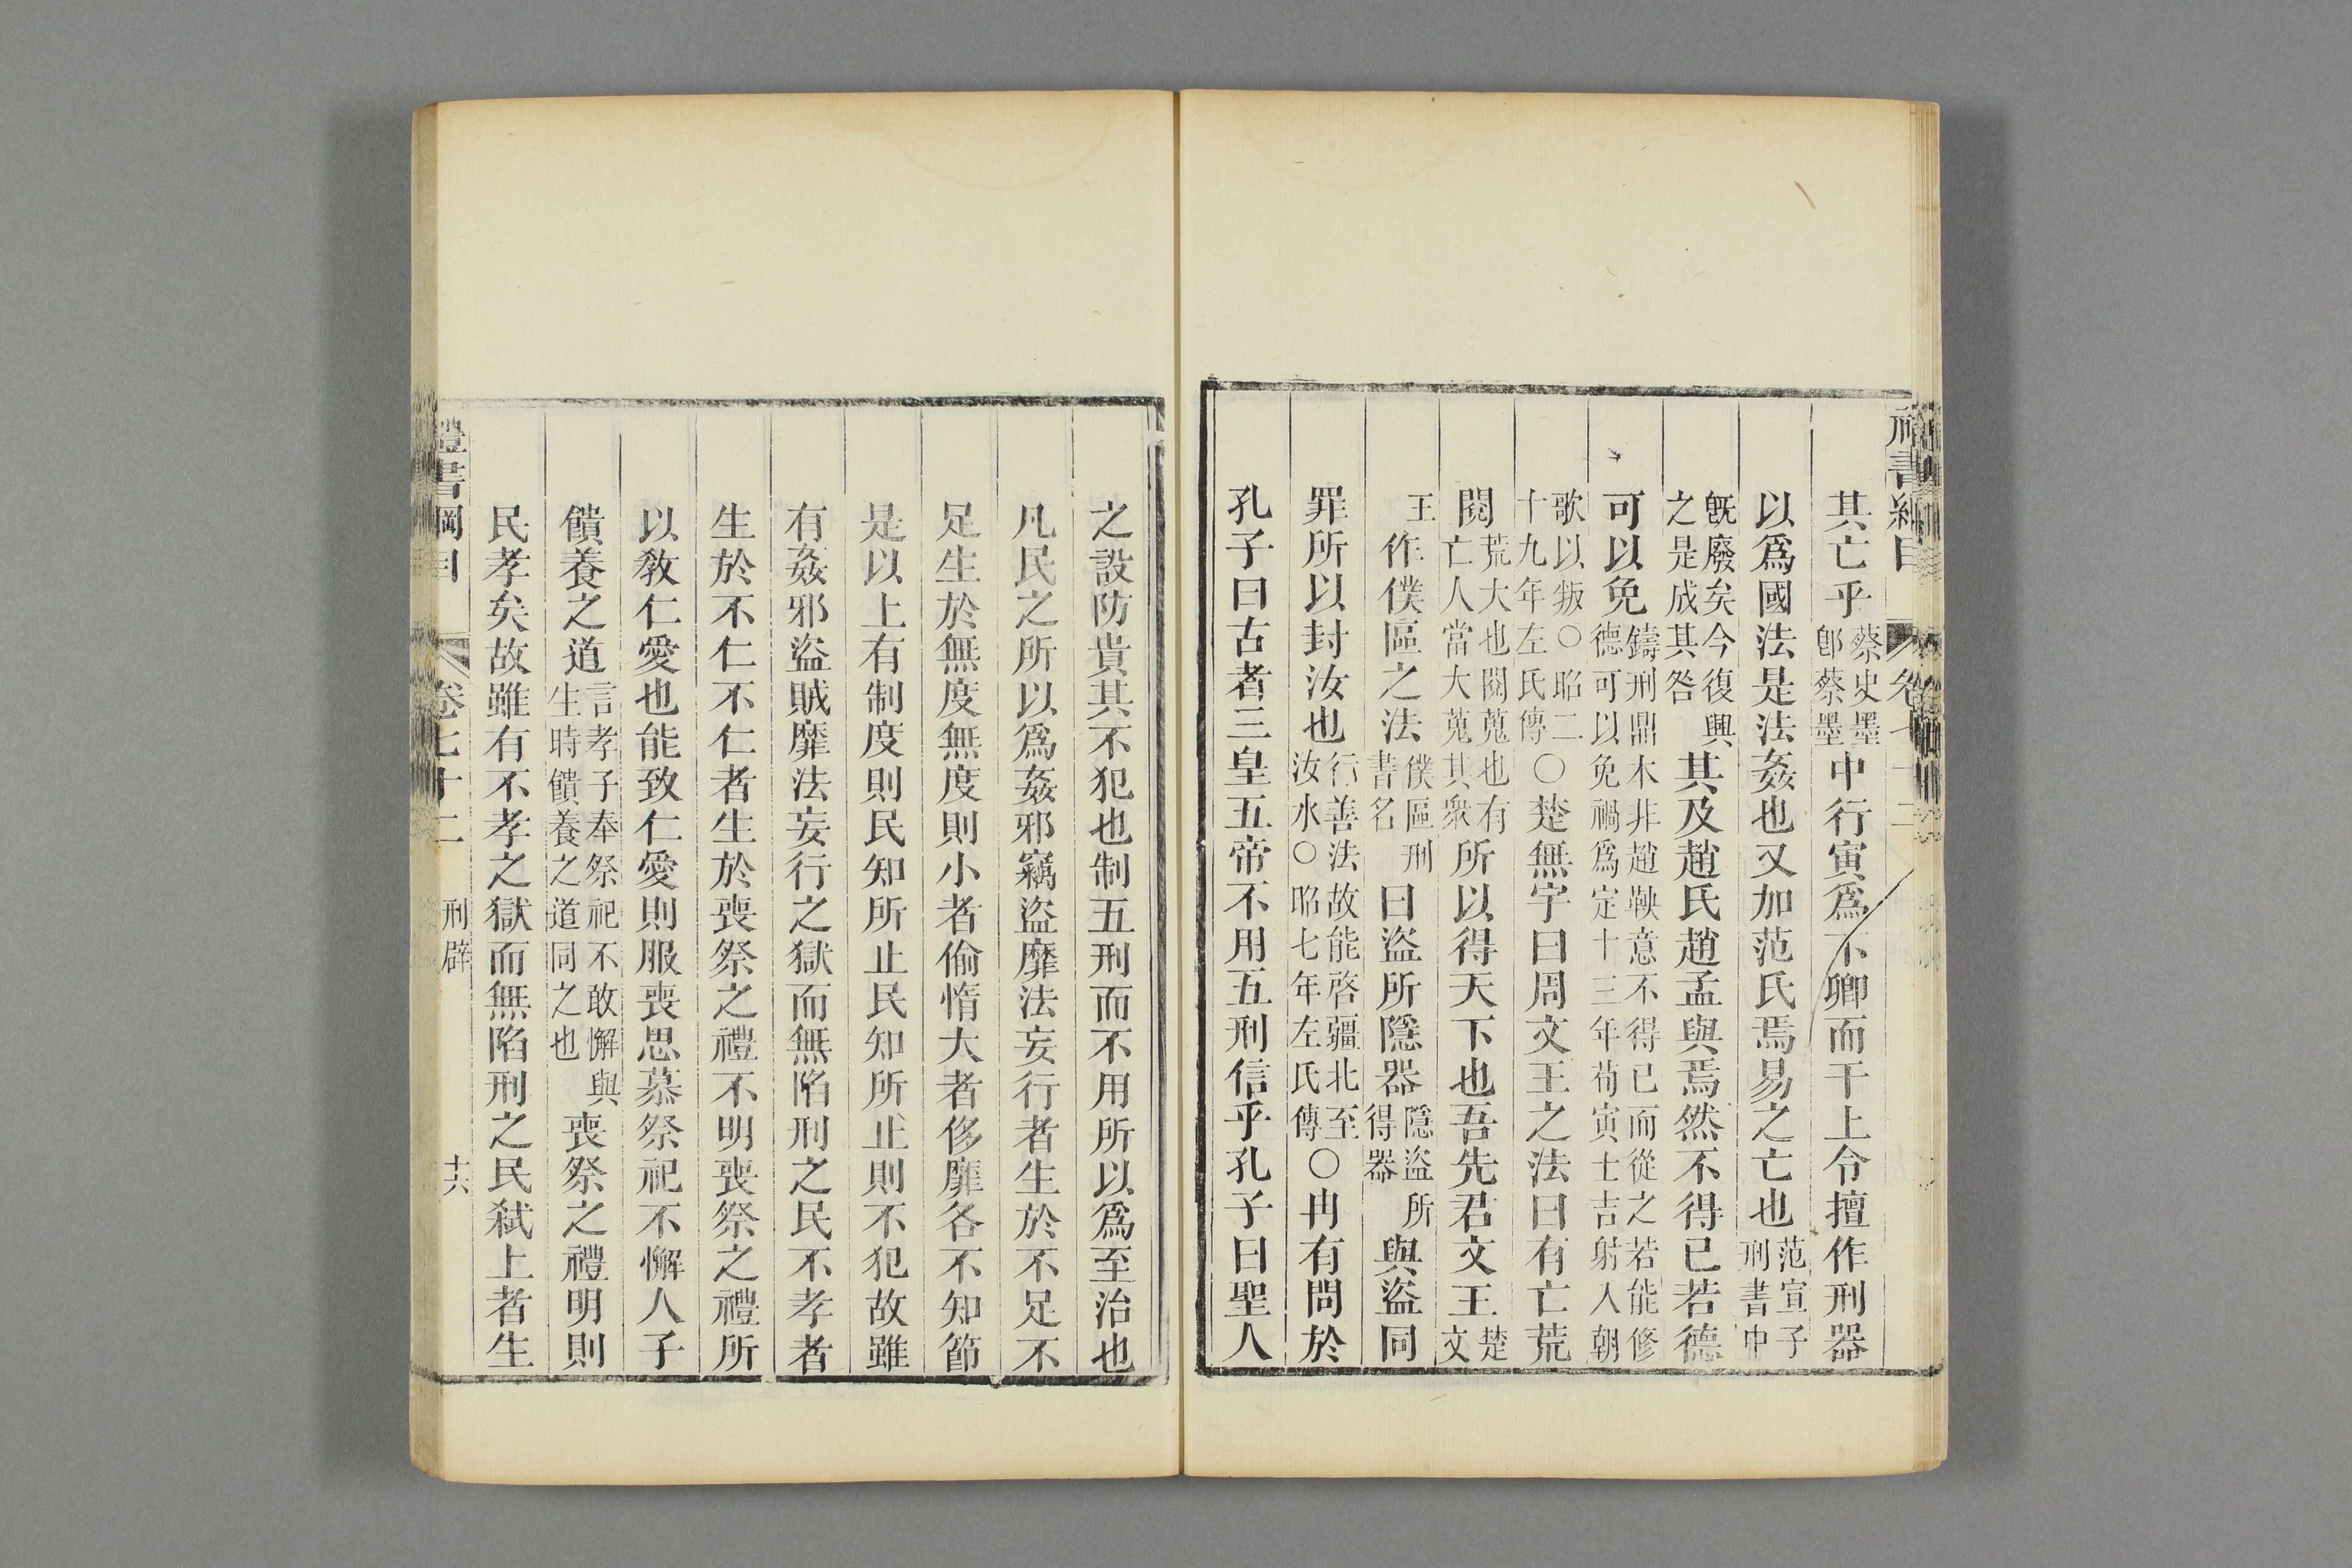 禮書綱目 卷七十二
其亡乎蔡史墨卽蔡墨中行寅爲下卿而干上令擅作刑器
以爲國法是法姦也又加范氏焉易之亡也范宣子刑書中
旣廢矣今復興之是成其咎其及趙氏趙孟與焉然不得已若德
可以免鑄刑鼎本非趙鞅意不得已而從之若能修德可以免禍爲定十三年荀寅士吉射入朝
歌以叛○昭二十九年左氏傳○楚無宇曰周文王之法曰有亡荒
閱荒大也閱蒐也有亡人當大蒐其衆所以得天下也吾先君文王楚文
王作僕區之法僕區刑書名曰盜所隱器隱盜所得器與盜同
罪所以封汝也行善法故能啓疆北至汝水○昭七年左氏傳○冉有問於
孔子曰古者三皇五帝不用五刑信乎孔子曰聖人
之設防貴其不犯也制五刑而不用所以爲至治也
凡民之所以爲姦邪竊盜靡法妄行者生於不足不
足生於無度無度則小者偷惰大者侈靡各不知節
是以上有制度則民知所止民知所止則不犯故雖
有姦邪盜賊靡法妄行之獄而無陷刑之民不孝者
生於不仁不仁者生於喪祭之禮不明喪祭之禮所
以敎仁愛也能致仁愛則服喪思慕祭祀不懈人子
饋養之道言孝子奉祭祀不敢懈與生時饋養之道同之也喪祭之禮明則
民孝矣故雖有不孝之獄而無陷刑之民弑上者生
禮書綱目 卷七十二 刑辟 十六